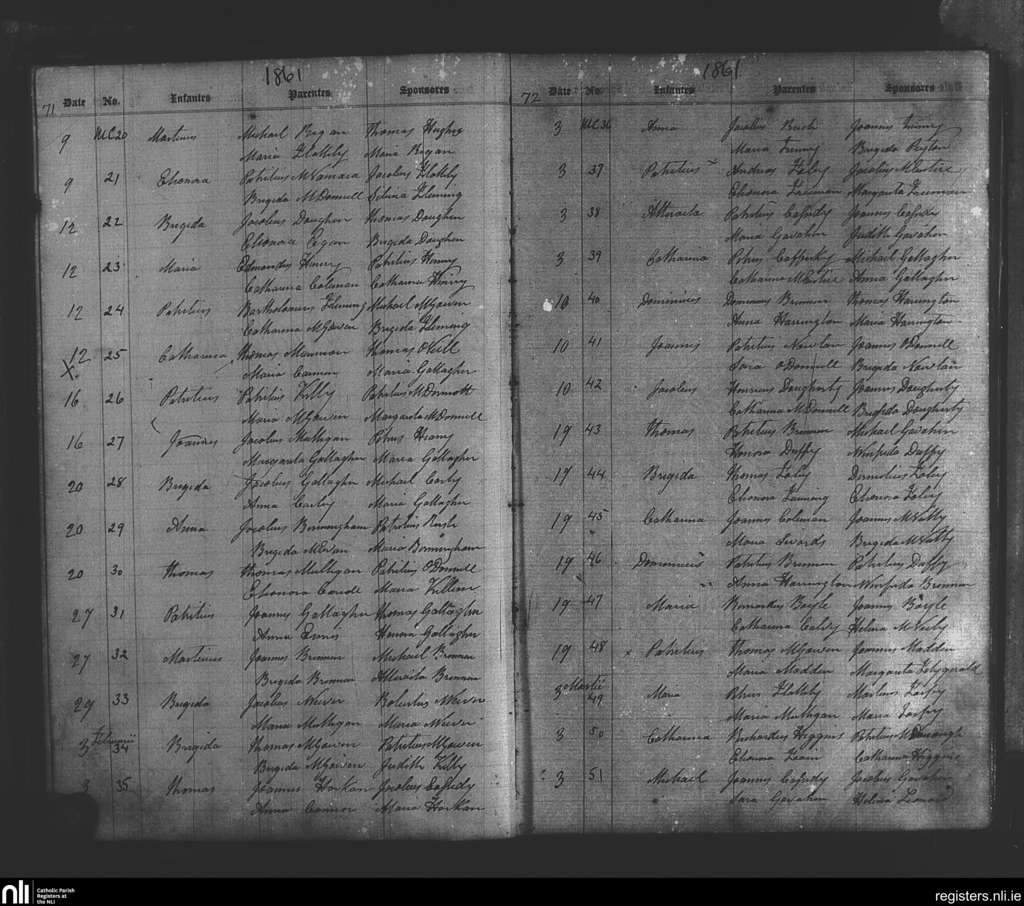 1861
71 Date No. Infantes Parentes Sponsores
9 20 Martinus Michael Regan Thomas Hughes
Maria Flattely Maria Regan
9 21 Eleonora Patritius McNamara Jacobus Flattely
Brigida McDonnell Selina Fleming
12 22 Brigida Jacobus Durghen Thomas Durghen
Eleonora Egan Brigida Durghen
12 23 Maria Edmondus Henry Patritius Henry
Catharina Coleman Catharina Henry
12 24 Patritius Bartholomeus Fleming Michael McGowen
Catharina McGowen Brigida Fleming
12 25 Catharina Thomas Thomas O'Neill
X Maria Maria Gallagher
16 26 Patritius Patritius Kelly Patritius McDermott
Maria McGowen Margarita McDonnell
16 27 Joannes Jacobus Mulligan Petrus
Margarita Gallagher Maria Gallagher
20 28 Brigida Jacobus Gallagher Michael Corley
Anna Corley Maria Gallagher
20 29 Anna Jacobus Birmingham Patritius
Brigida McEwan Maria Birmingham
20 30 Thomas Thomas Mulligan Patritius O'Donnell
Eleonora Maria Killeen
27 31 Patritius Joannes Gallagher Thomas Gallagher
Anna Honora Gallagher
27 32 Martinus Joannes Brennan Michael Brennan
Brigida Brennan Attracta Brennan
27 33 Brigida Jacobus Robertus
Maria Mulligan Maria
Februarii
3 34 Brigida Thomas McGowen Patritius McGowen
Brigida McGowen Judith Kelly
3 35 Thomas Joannes Horkan Jacobus Cassidy
Anna Connor Maria Horkan
1861
72 Date No. Infantes Parentes Sponsores
3 36 Anna Jacobus Joannes
Maria Brigida
3 37 Patritius Andreas Foley Jacobus
Eleonora Freeman Margarita Freeman
3 38 Attracta Patritius Cassidy Joannes Cassidy
Maria Gavahan Judith Gavahan
3 39 Catharina Petrus Cafferky Michael Gallagher
Catharina Anna Gallagher
10 40 Dominicus Dominicus Brennan Thomas Harrington
Anna Harrington Maria Harrington
10 41 Joannes Patritius Joannes O'Donnell
Sara O'Donnell Brigida
10 42 Jacobus Henricus Dougherty Joannes Dougherty
Catharina McDonnell Brigida Dougherty
19 43 Thomas Patritius Brennan Michael Gavahan
Honora Duffy Winifrida Duffy
19 44 Brigida Thomas Foley Dermitius Foley
Eleonora Fleming Eleonora Foley
19 45 Catharina Joannes Coleman Joannes McNulty
Maria Swords Brigida McNulty
19 46 Dominicus Patritius Brennan Patritius Duffy
Anna Harrington Winifrida Brennan
19 47 Maria Bernardus Boyle Joannes Boyle
Catharina Helena
19 48 x Patritius Thomas McGowen Joannes Madden
Maria Madden Margarita Fitzgerald
Martii
3 49 Maria Petrus Flattely Martinus
Maria Mulligan Maria
3 50 Catharina Richardus Higgins Patritius McDonough
Eleonora Catharina Higgins
3 51 Michael Joannes Cassidy Jacobus Gavahan
Sara Gavahan Helena Leonard
nli Catholic Parish
Registers at
the NLI
registers.nli.ie